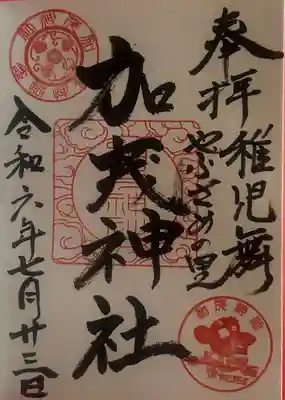 奉拝稚児舞
やぶさめの里
加茂神社
令和六年七月廿三日
加茂神社